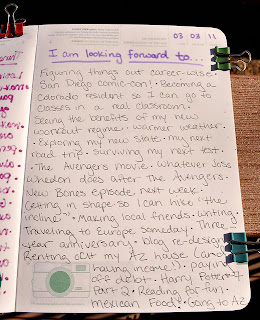 11 EO EO
I am looking forward to...
Figuring things out career-wise •
San Diego comic-con! • Becoming a
Colorado resident so I can go to
classes in a real classroom •
Seeing the benefits of my new
workout regime • warmer weather •
• Exploring my new state • my next
road trip • Surviving my next test •
• The Avengers movie • Whatever Joss
Whedon does after The Avengers •
New Bones episode next week •
Getting in shape so I can hike "the
incline" • Making local friends • writing •
Traveling to Europe someday • Three-
year anniversary • blog re-design •
Renting out my AZ house (and
having income!) • paying
off debt • Harry Potter 7
Part 2 • Reading for fun •
mexican Food! • Going to AZ